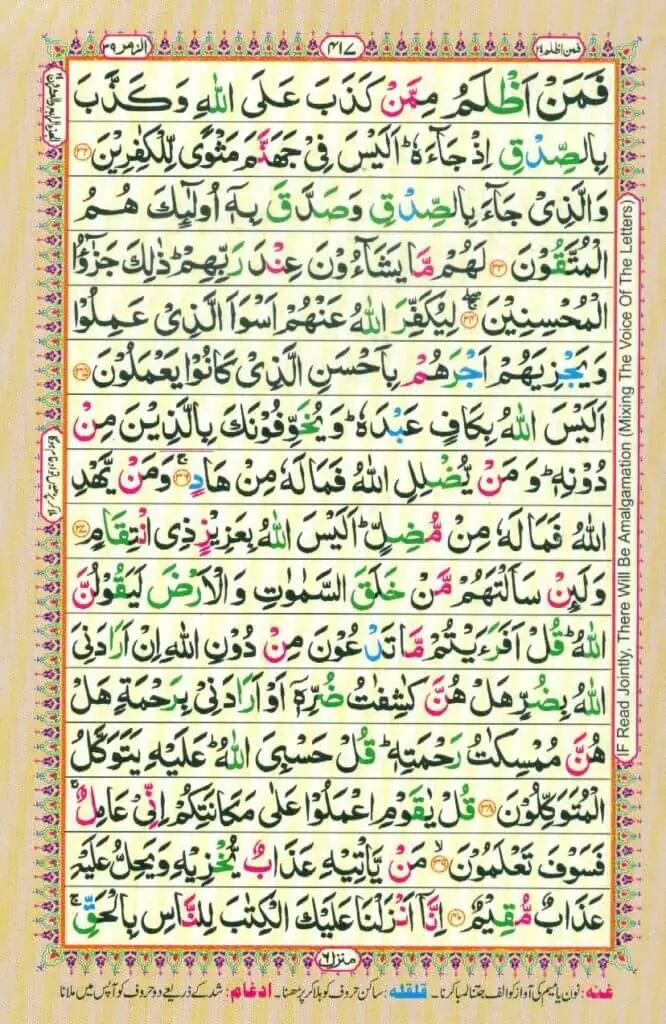 فمن اظلم ۲۴
۴۱۷
الزمر ۳۹
فَمَنْ اَظْلَمُ مِمَّنْ كَذَبَ عَلَى اللّٰهِ وَكَذَّبَ
بِالصِّدْقِ اِذْ جَآءَهٗ ؕ اَلَيْسَ فِيْ جَهَنَّمَ مَثْوًى لِّلْكٰفِرِيْنَ ۝۳۲
وَالَّذِيْ جَآءَ بِالصِّدْقِ وَصَدَّقَ بِهٖۤ اُولٰٓئِكَ هُمُ
الْمُتَّقُوْنَ ۝۳۳ لَهُمْ مَّا يَشَآءُوْنَ عِنْدَ رَبِّهِمْ ؕ ذٰلِكَ جَزٰٓؤُا
الْمُحْسِنِيْنَ ۝۳۴ۚۖ لِيُكَفِّرَ اللّٰهُ عَنْهُمْ اَسْوَاَ الَّذِيْ عَمِلُوْا
وَيَجْزِيَهُمْ اَجْرَهُمْ بِاَحْسَنِ الَّذِيْ كَانُوْا يَعْمَلُوْنَ ۝۳۵
اَلَيْسَ اللّٰهُ بِكَافٍ عَبْدَهٗ ؕ وَيُخَوِّفُوْنَكَ بِالَّذِيْنَ مِنْ
دُوْنِهٖ ؕ وَمَنْ يُّضْلِلِ اللّٰهُ فَمَا لَهٗ مِنْ هَادٍ ۝۳۶ۚ وَمَنْ يَّهْدِ
اللّٰهُ فَمَا لَهٗ مِنْ مُّضِلٍّ ؕ اَلَيْسَ اللّٰهُ بِعَزِيْزٍ ذِي انْتِقَامٍ ۝۳۷
وَلَئِنْ سَاَلْتَهُمْ مَّنْ خَلَقَ السَّمٰوٰتِ وَالْاَرْضَ لَيَقُوْلُنَّ
اللّٰهُ ؕ قُلْ اَفَرَءَيْتُمْ مَّا تَدْعُوْنَ مِنْ دُوْنِ اللّٰهِ اِنْ اَرَادَنِيَ
اللّٰهُ بِضُرٍّ هَلْ هُنَّ كٰشِفٰتُ ضُرِّهٖۤ اَوْ اَرَادَنِيْ بِرَحْمَةٍ هَلْ
هُنَّ مُمْسِكٰتُ رَحْمَتِهٖ ؕ قُلْ حَسْبِيَ اللّٰهُ ؕ عَلَيْهِ يَتَوَكَّلُ
الْمُتَوَكِّلُوْنَ ۝۳۸ قُلْ يٰقَوْمِ اعْمَلُوْا عَلٰى مَكَانَتِكُمْ اِنِّيْ عَامِلٌ ۚ
فَسَوْفَ تَعْلَمُوْنَ ۝۳۹ۙ مَنْ يَّاْتِيْهِ عَذَابٌ يُّخْزِيْهِ وَيَحِلُّ عَلَيْهِ
عَذَابٌ مُّقِيْمٌ ۝۴۰ اِنَّاۤ اَنْزَلْنَا عَلَيْكَ الْكِتٰبَ لِلنَّاسِ بِالْحَقِّ ۚ
منزل ۶
غنہ: نون یا میم کی آواز کو الف جتنا لمبا کرنا۔ قلقلہ: ساکن حروف کو ہلا کر پڑھنا۔ ادغام: شد کے ذریعے دو حروف کو آپس میں ملانا
IF Read Jointly, There Will Be Amalgamation (Mixing The Voice Of The Letters)